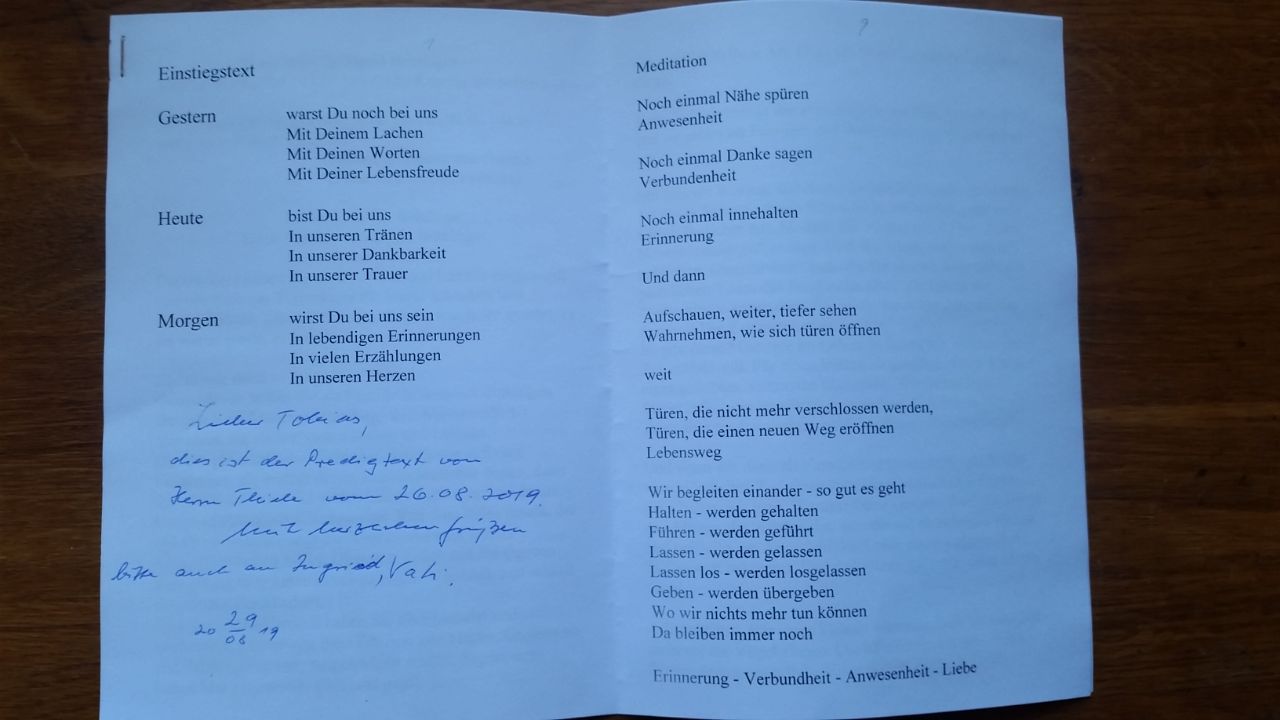 1
Einstiegstext
Gestern warst Du noch bei uns
Mit Deinem Lachen
Mit Deinen Worten
Mit Deiner Lebensfreude
Heute bist Du bei uns
In unseren Tränen
In unserer Dankbarkeit
In unserer Trauer
Morgen wirst Du bei uns sein
In lebendigen Erinnerungen
In vielen Erzählungen
In unseren Herzen
Lieber Tobias,
dies ist der Predigtext von
Herrn Thiele vom 26.08.2019.
Mit herzlichen Grüßen
bitte auch an Ingrid, Vati.
20 29/08 19
2
Meditation
Noch einmal Nähe spüren
Anwesenheit
Noch einmal Danke sagen
Verbundenheit
Noch einmal innehalten
Erinnerung
Und dann
Aufschauen, weiter, tiefer sehen
Wahrnehmen, wie sich türen öffnen
weit
Türen, die nicht mehr verschlossen werden,
Türen, die einen neuen Weg eröffnen
Lebensweg
Wir begleiten einander - so gut es geht
Halten - werden gehalten
Führen - werden geführt
Lassen - werden gelassen
Lassen los - werden losgelassen
Geben - werden übergeben
Wo wir nichts mehr tun können
Da bleiben immer noch
Erinnerung - Verbundheit - Anwesenheit - Liebe